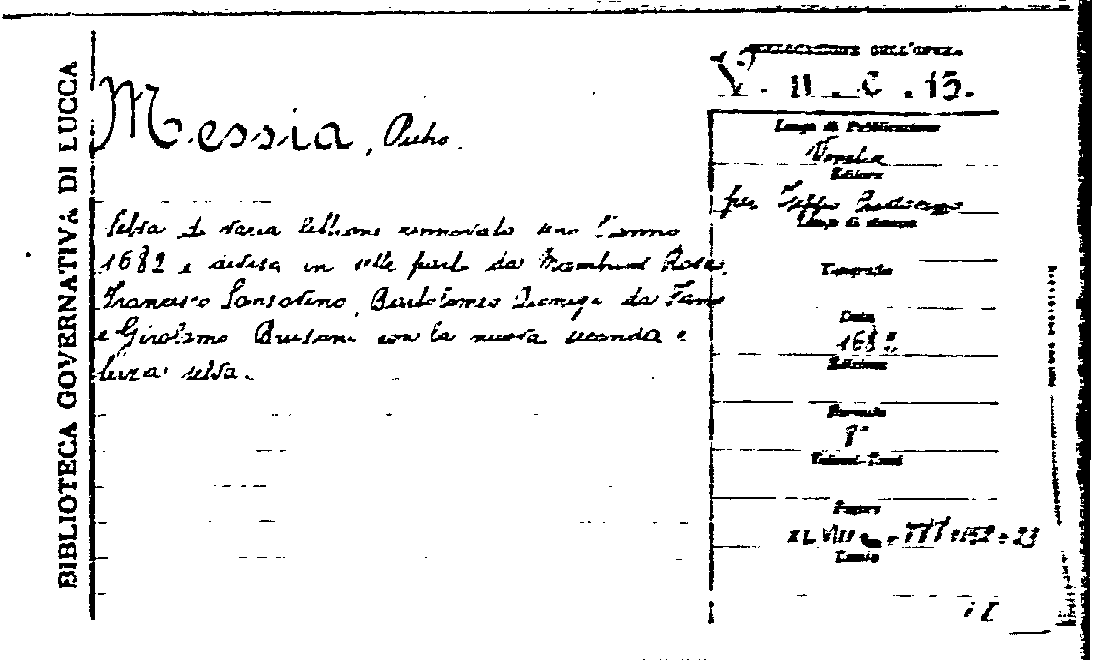 BIBLIOTECA GOVERNATIVA DI LUCCA
Messia, Pietro.
Selva di varia lettione rinnovata sino l'anno
1682 e divisa in sette parti da Mambrino Roseo,
Francesco Sansovino, Bartolomeo Dionigi da Fano
e Girolamo Brusoni con la nuova seconda e
terza selva.
COLLOCAZIONE DELL'OPERA
V. 11. C. 15.
Luogo di Pubblicazione
Venezia
Editore
per
Luogo di stampa
Tipografo
Data
1682
Edizione
Formato
8°
Volumi-Tomi
Pagine
XLVIII
152 - 23